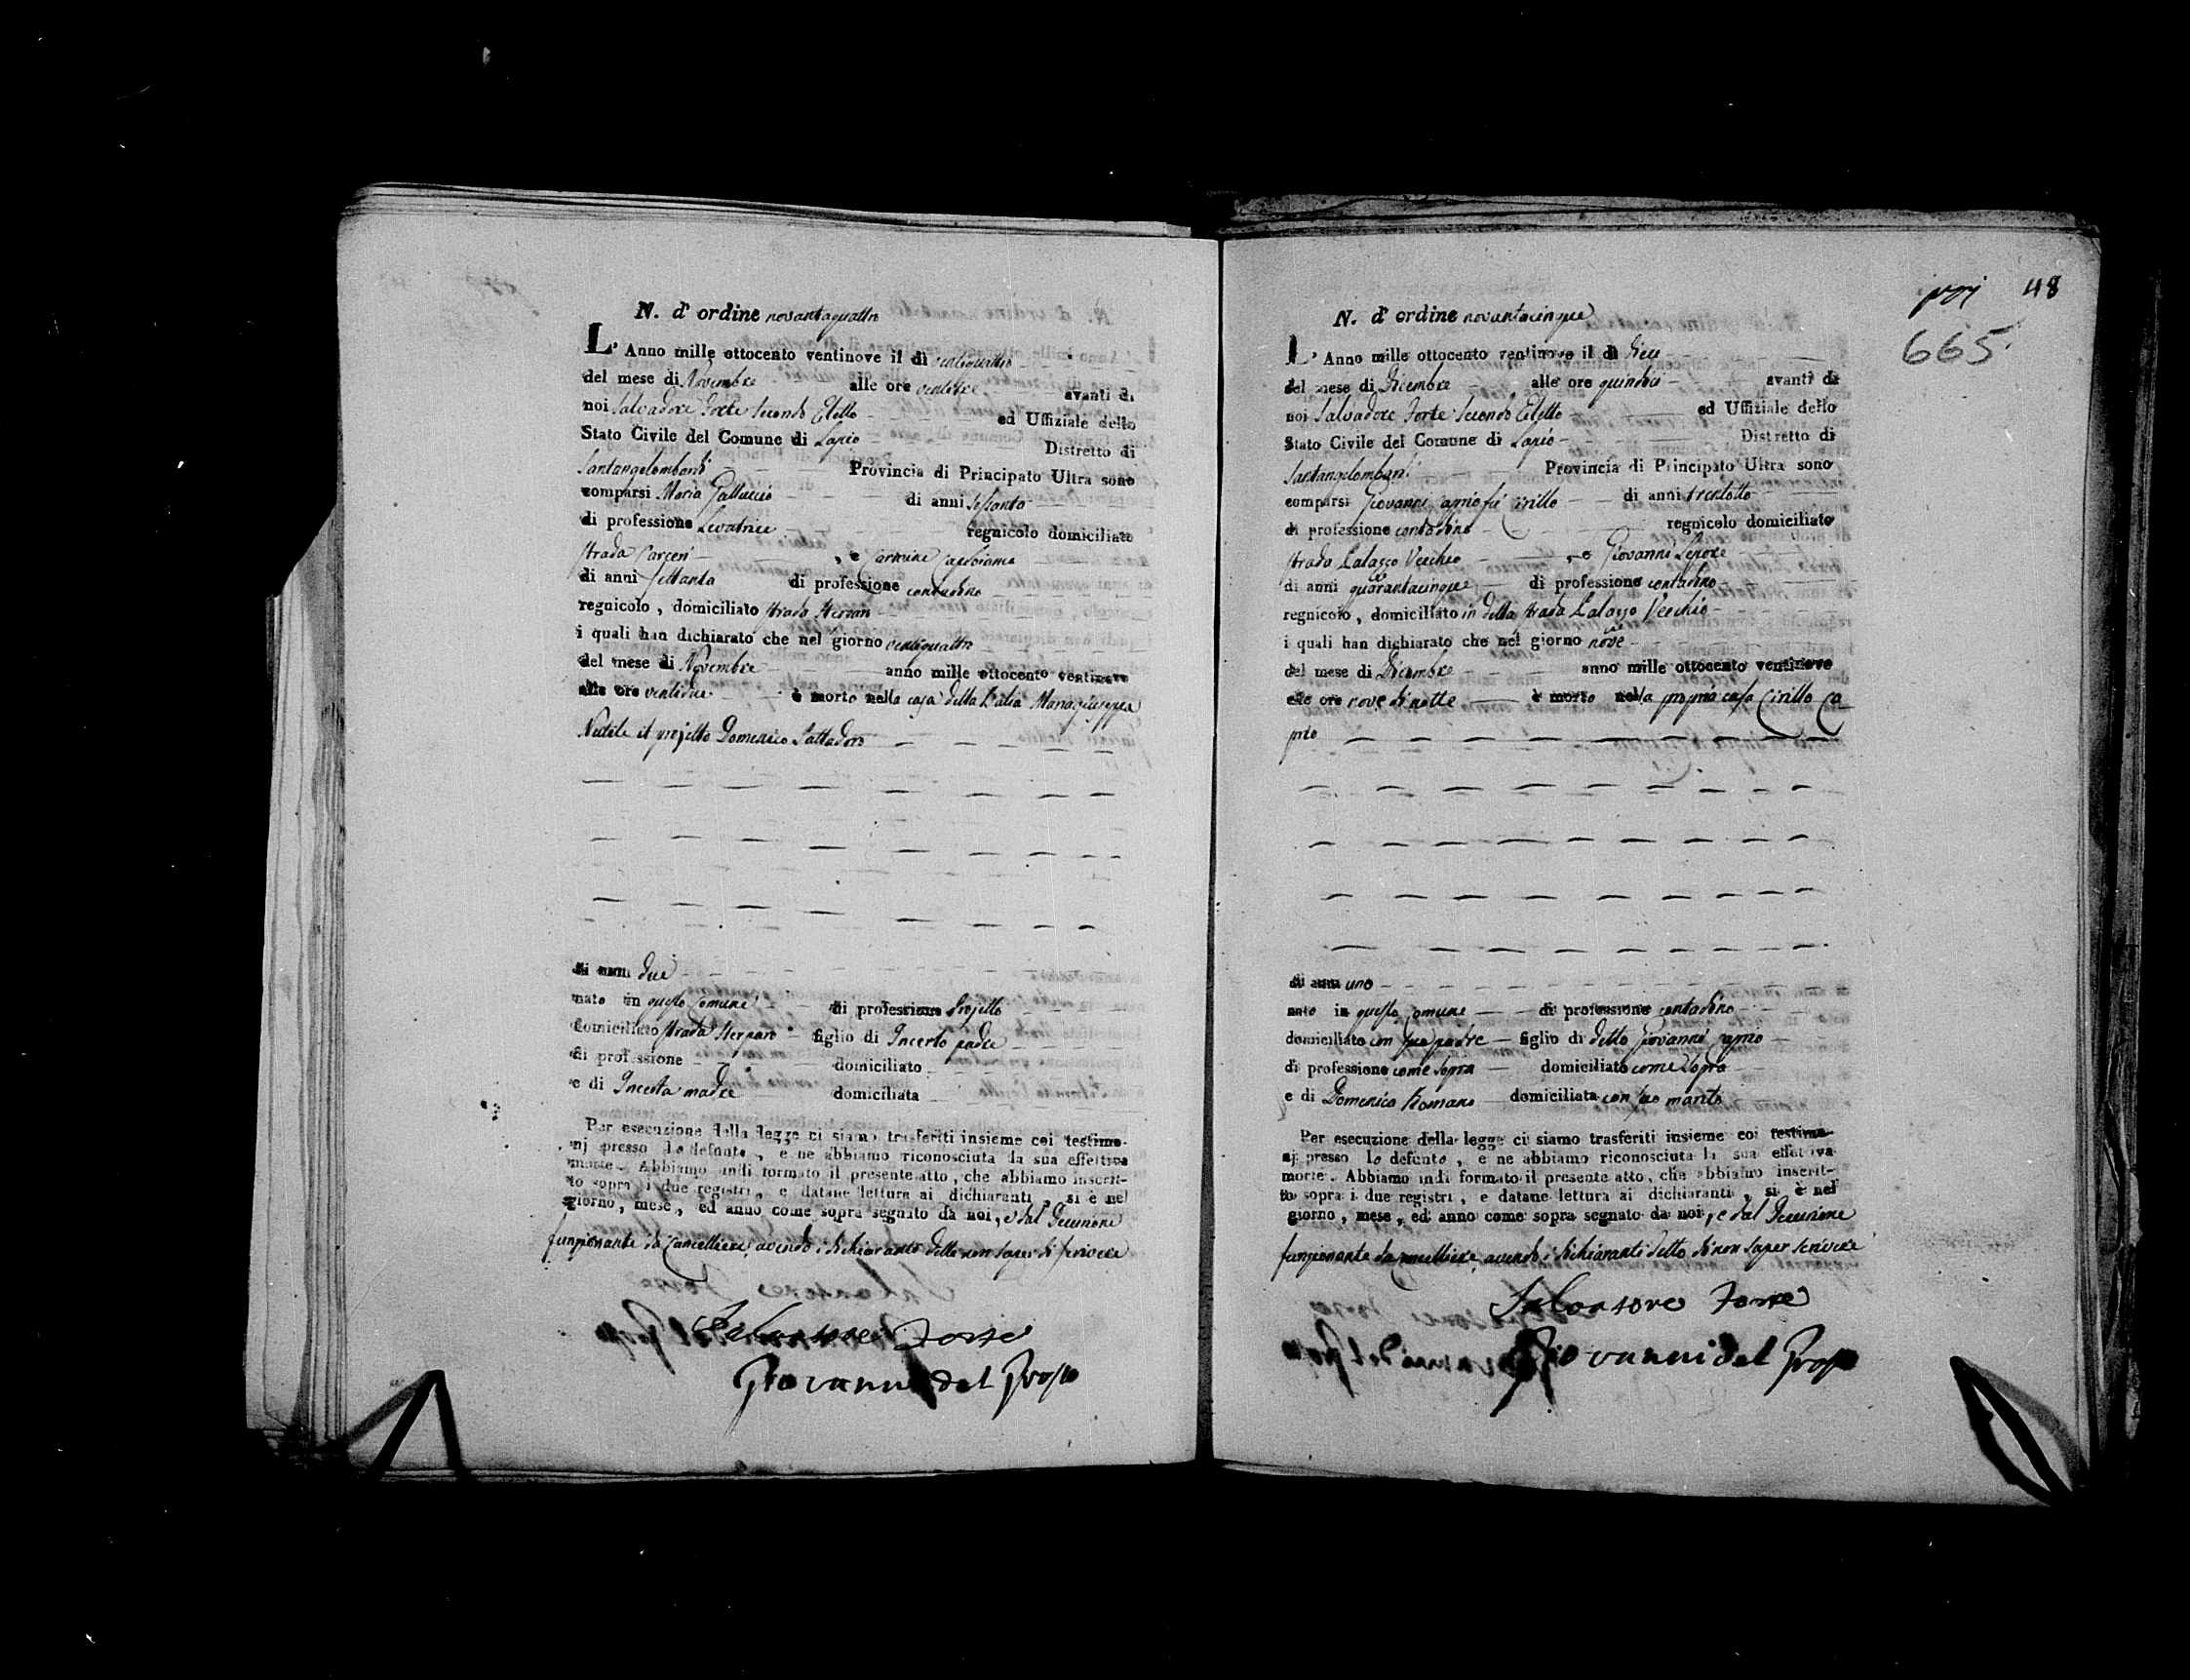 N. d' ordine novantaquattro
L' Anno mille ottocento ventinove il dì ventiquattro
del mese di Novembre alle ore ventitre avanti di
noi Salvadore Forte secondo Eletto ed Uffiziale dello
Stato Civile del Comune di Lapio Distretto di
Santangelombardi Provincia di Principato Ultra sono
comparsi Maria Galluccio di anni sessanta
di professione Levatrice regnicolo domiciliato
strada Carceri , e Carmine
di anni settanta di professione contadino
regnicolo , domiciliato strada
i quali han dichiarato che nel giorno ventiquattro
del mese di Novembre anno mille ottocento ventinove
alle ore ventidue è morto nella casa della Balia Mariagiuseppa
il projetto Domenico
di anni due
nato in questo Comune di professione Projetto
domiciliato strada figlio di Incerto padre
di professione domiciliato
e di Incerta madre domiciliata
Per esecuzione della legge ci siamo trasferiti insieme coi testimo-
nj presso lo defunto , e ne abbiamo riconosciuta la sua effettiva
morte . Abbiamo indi formato il presente atto , che abbiamo inscrit-
to sopra i due registri , e datane lettura ai dichiaranti , si è nel
giorno , mese , ed anno come sopra segnato da noi , e dal Decurione
funzionante da Cancelliere, avendo i dichiaranti detto non saper di scrivere
Salvatore Forte
Giovanni del Grosso
proj 48
665
N. d' ordine novantacinque
L' Anno mille ottocento ventinove il dì dieci
del mese di Dicembre alle ore quindici avanti di
noi Salvadore Forte secondo Eletto ed Uffiziale dello
Stato Civile del Comune di Lapio Distretto di
Santangelombardi Provincia di Principato Ultra sono
comparsi Giovanni Caprio fu Cirillo di anni trentotto
di professione contadino regnicolo domiciliato
strada Palazzo Vecchio , e Giovanni Lepore
di anni quarantacinque di professione contadino
regnicolo , domiciliato in detta strada Palazzo Vecchio
i quali han dichiarato che nel giorno nove
del mese di Dicembre anno mille ottocento ventinove
alle ore nove di notte è morto nella propria casa Cirillo Ca-
prio
di anni uno
nato in questo Comune di professione contadino
domiciliato con suo padre figlio di detto Giovanni Caprio
di professione come sopra domiciliato come sopra
e di Domenica Romano domiciliata con suo marito
Per esecuzione della legge ci siamo trasferiti insieme coi testimo-
nj presso lo defunto , e ne abbiamo riconosciuta la sua effettiva
morte . Abbiamo indi formato il presente atto , che abbiamo inscrit-
to sopra i due registri , e datane lettura ai dichiaranti , si è nel
giorno , mese , ed anno come sopra segnato da noi , e dal Decurione
funzionante da Cancelliere, avendo i dichiaranti detto di non saper scrivere
Salvatore Forte
Giovanni del Grosso